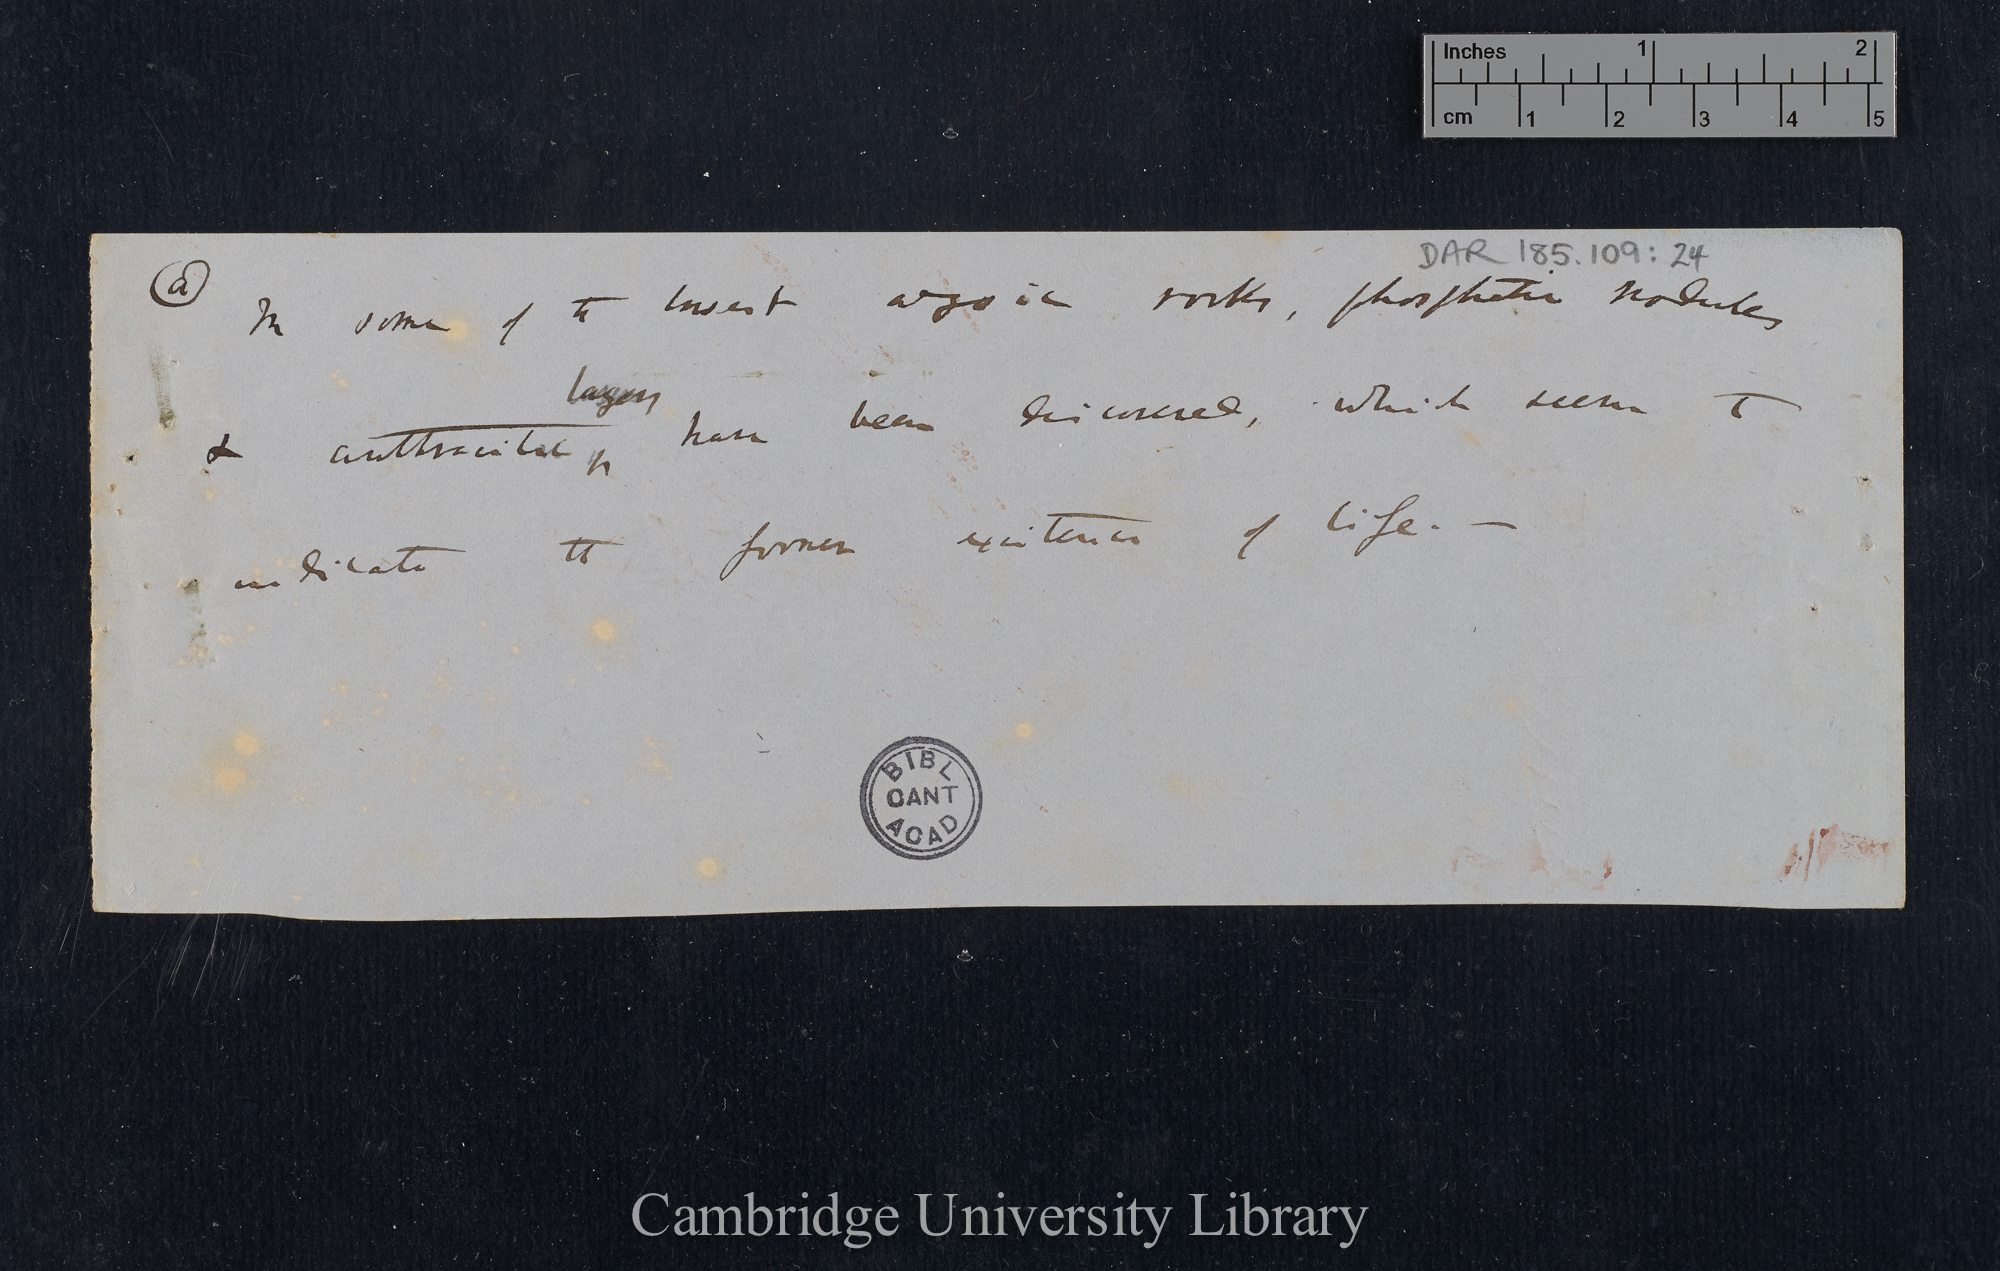 Inches 1 2
cm 1 2 3 4 5
DAR 185.109: 24
(a) In some of the lowest azoic rocks, phosphatic nodules
layers
& anthracital have been discovered, which seem to
indicate the former existence of life. —
BIBL
CANT
ACAD
Cambridge University Library